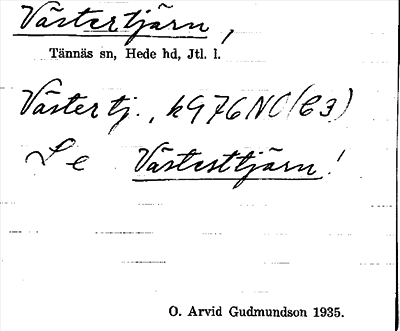 Västertjärn,
Tännäs sn, Hede hd, Jtl. l.
Västertj., k976NO(C3)
Se Västesttjärn!
O. Arvid Gudmundson 1935.